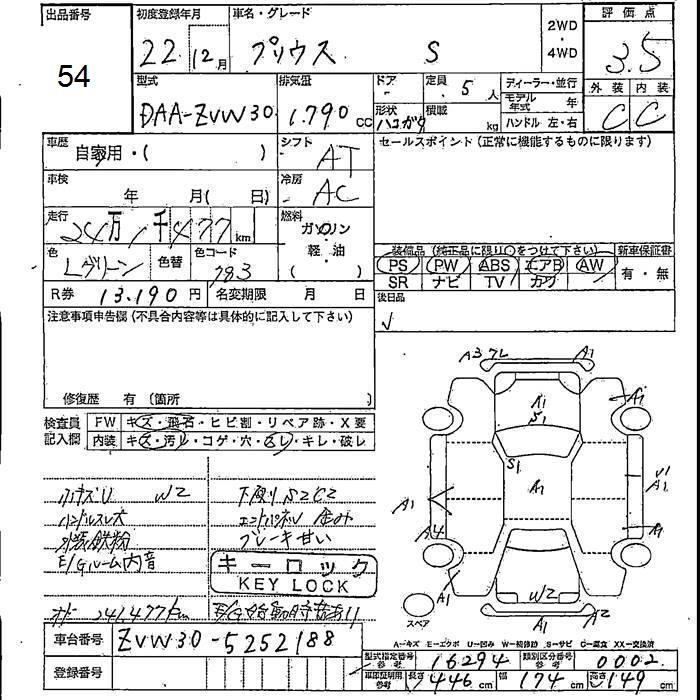 出品番号 初度登録年月 車名・グレード 2WD・4WD 評価点
54 22年12月 プリウス S 3.5
型式 排気量 ドア - 定員 5人 ディーラー・並行 外装 内装
DAA-ZVW30 1.790cc 形状 ハコガタ 積載 kg モデル年式 年 C C
ハンドル 左・右
車歴 自家用・( ) シフト AT セールスポイント(正常に機能するものに限ります)
車検 年 月( 日) 冷房 AC
走行 24万1千477km 燃料 ガソリン・軽油( )
色 Lグリーン 色替 色コード 783
装備品(純正品に限り○をつけて下さい) 新車保証書
PS PW ABS エアB AW 有・無
SR ナビ TV カワ
R券 13.190円 名変期限 月 日 後日品
注意事項申告欄(不具合内容等は具体的に記入して下さい)
修復歴 有(箇所 )
検査員記入欄 FW キズ・飛石・ヒビ割・リペア跡・X要
内装 キズ・汚れ・コゲ・穴・スレ・キレ・破レ
A3 A1
A1
A1 S1
S1
A1 A1 A1
A4 A1
W2
A1 A1 A2
スペア
W2 下廻りS2C2
ハンドルスレ大
外装鉄粉 ブレーキ甘い
E/Gルーム内音
キーロック
KEY LOCK
241.477km
車台番号 ZVW30-5252188
登録番号
A=キズ E=エクボ U=凹み W=補修跡 S=サビ C=腐食 XX=交換済
型式指定番号 参考 16294 類別区分番号 参考 0002
車庫証明用 参考 長さ 446cm 幅 174cm 高さ 149cm